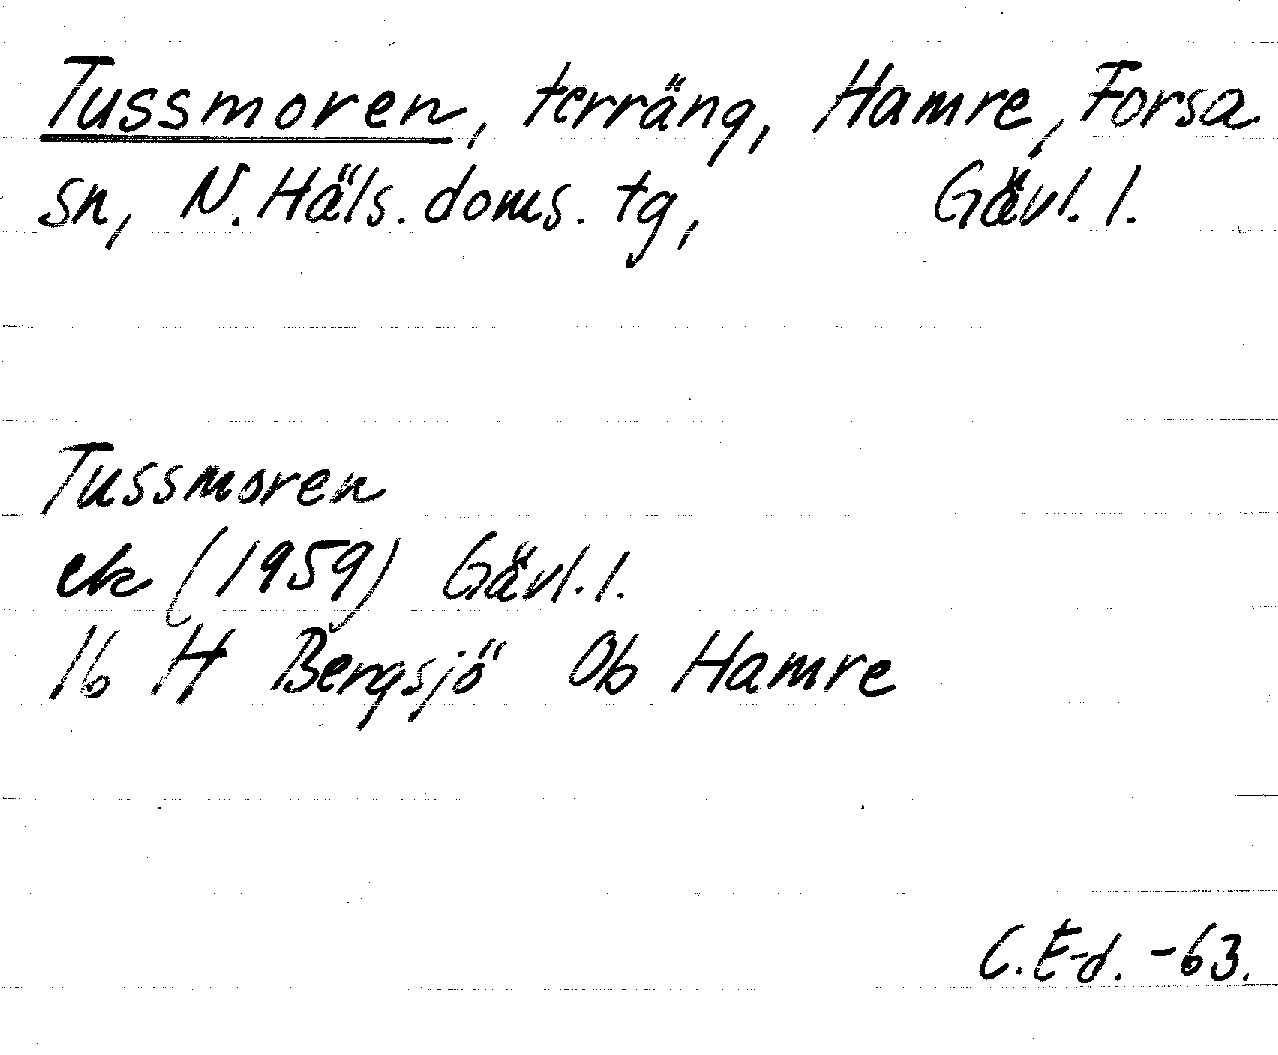 Tussmoren, terräng, Hamre, Forsa
sn, N. Häls. doms. tg, Gävl. l.
Tussmoren
ek (1959) Gävl. l.
16 H Bergsjö Ob Hamre
C. E-d. -63.